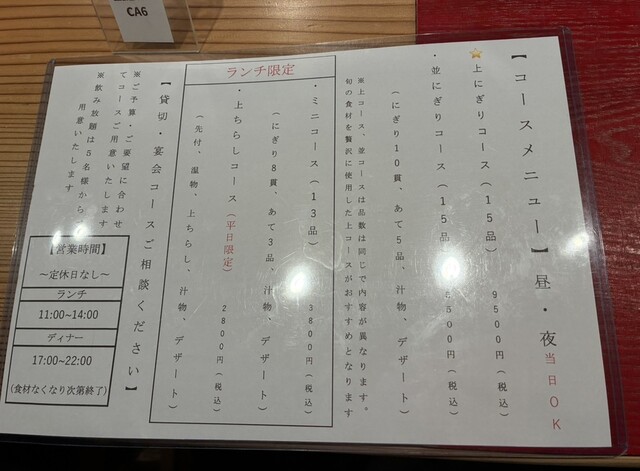 CA6
【コースメニュー】昼・夜 当日OK
⭐上にぎりコース（15品） 9500円（税込）
・並にぎりコース（15品） 500円（税込）
（にぎり10貫、あて5品、汁物、デザート）
※上コース、並コースは品数は同じで内容が異なります。
旬の食材を贅沢に使用した上コースがおすすめとなります
ランチ限定
・ミニコース（13品） 3800円（税込）
（にぎり8貫、あて3品、汁物、デザート）
・上ちらしコース（平日限定） 2800円（税込）
（先付、温物、上ちらし、汁物、デザート）
【貸切・宴会コースご相談ください】
※ご予算・ご要望に合わせ
てコースご用意いたします
※飲み放題は5名様から
用意いたします
【営業時間】
～定休日なし～
ランチ
11:00~14:00
ディナー
17:00~22:00
(食材なくなり次第終了)